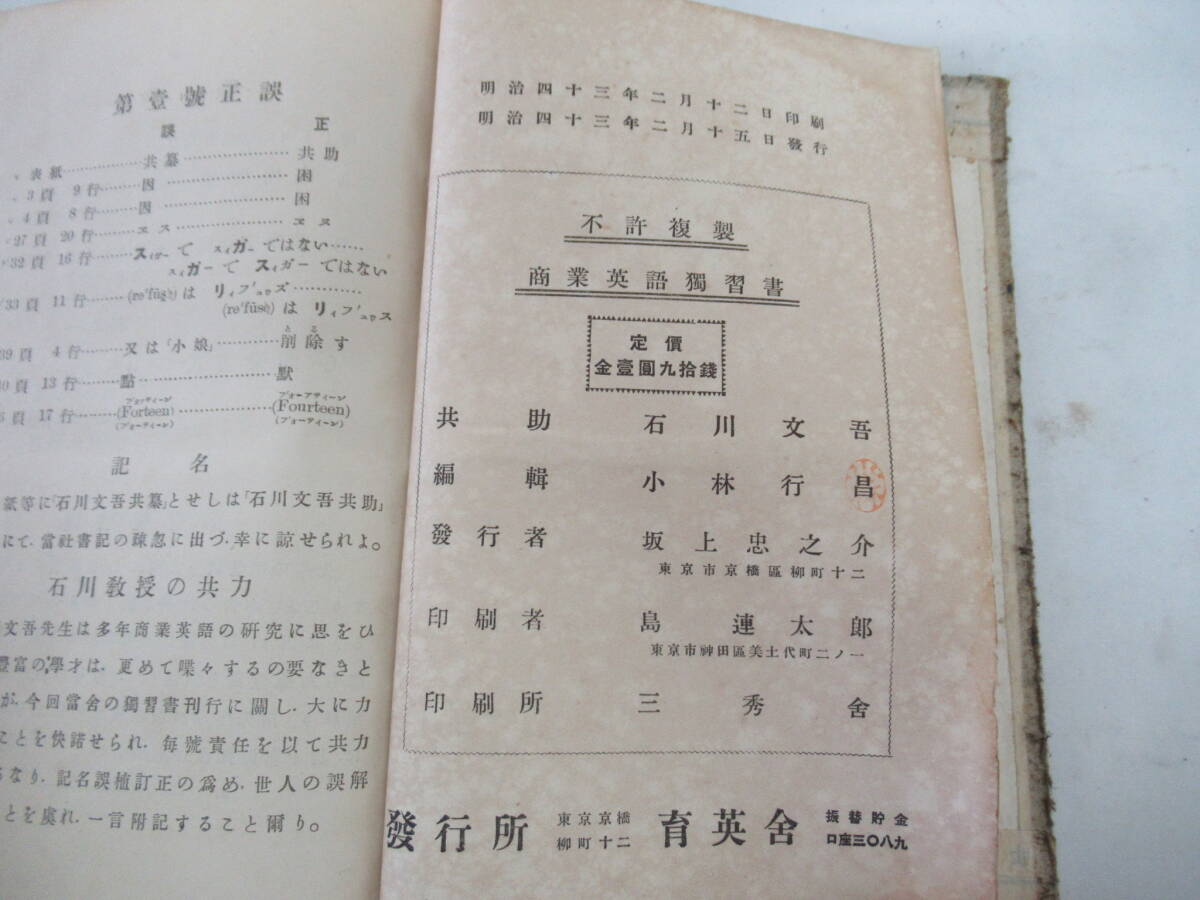 第壹號正誤
誤 正
表紙………共纂……………共助
3頁 9行……因……………困
4頁 8行……因……………困
27頁 20行……ヱス……………ヱヌ
32頁 16行……スィガーで スィガーではない……
スィガーで スィガーではない
33頁 11行……(re'fūse)は リィフ'ュウズ…………
(re'fūse)は リィフ'ュウス
39頁 4行……又は「小娘」………削除す
頁 13行……點……………默
頁 17行……(Forteen)……………(Fourteen)
記名
紙等に「石川文吾共纂」とせしは「石川文吾共助」
にて、當社書記の疎忽に出づ、幸に諒せられよ。
石川教授の共力
文吾先生は多年商業英語の研究に思をひ
豐富の學才は、更めて喋々するの要なきと
が、今回當舍の獨習書刊行に關し、大に力
ことを快諾せられ、毎號責任を以て共力
なり、記名誤植訂正の爲め、世人の誤解
ことを虞れ、一言附記すること爾り。
明治四十三年二月十二日印刷
明治四十三年二月十五日發行
不許複製
商業英語獨習書
定價
金壹圓九拾錢
共助 石川文吾
編輯 小林行昌
發行者 坂上忠之介
東京市京橋區柳町十二
印刷者 島連太郎
東京市神田區美土代町二ノ一
印刷所 三秀舍
發行所 東京京橋柳町十二 育英舍 振替貯金口座三〇八九